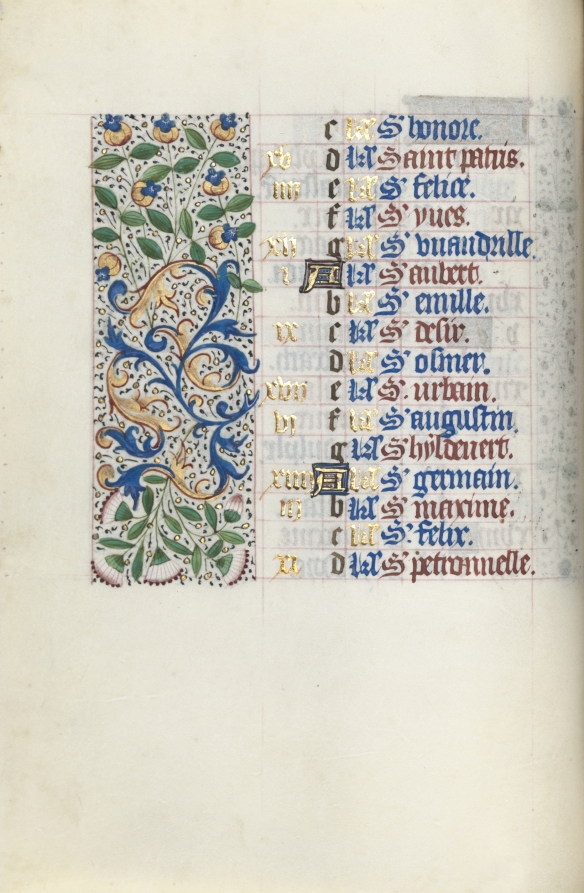 c kl S' honore.
xv d kl Saint patris.
iiii e kl S' felice.
f kl S' yues.
xii g kl S' vuandrille.
i A kl S' aubert.
b kl S' emille.
ix c kl S' desir.
d kl S' osmer.
xvii e kl S' urbain.
vi f kl S' augustin.
g kl S' hyldeuert.
xiiii A kl S' germain.
iii b kl S' maxime.
c kl S' felix.
xi d kl S' petronnelle.